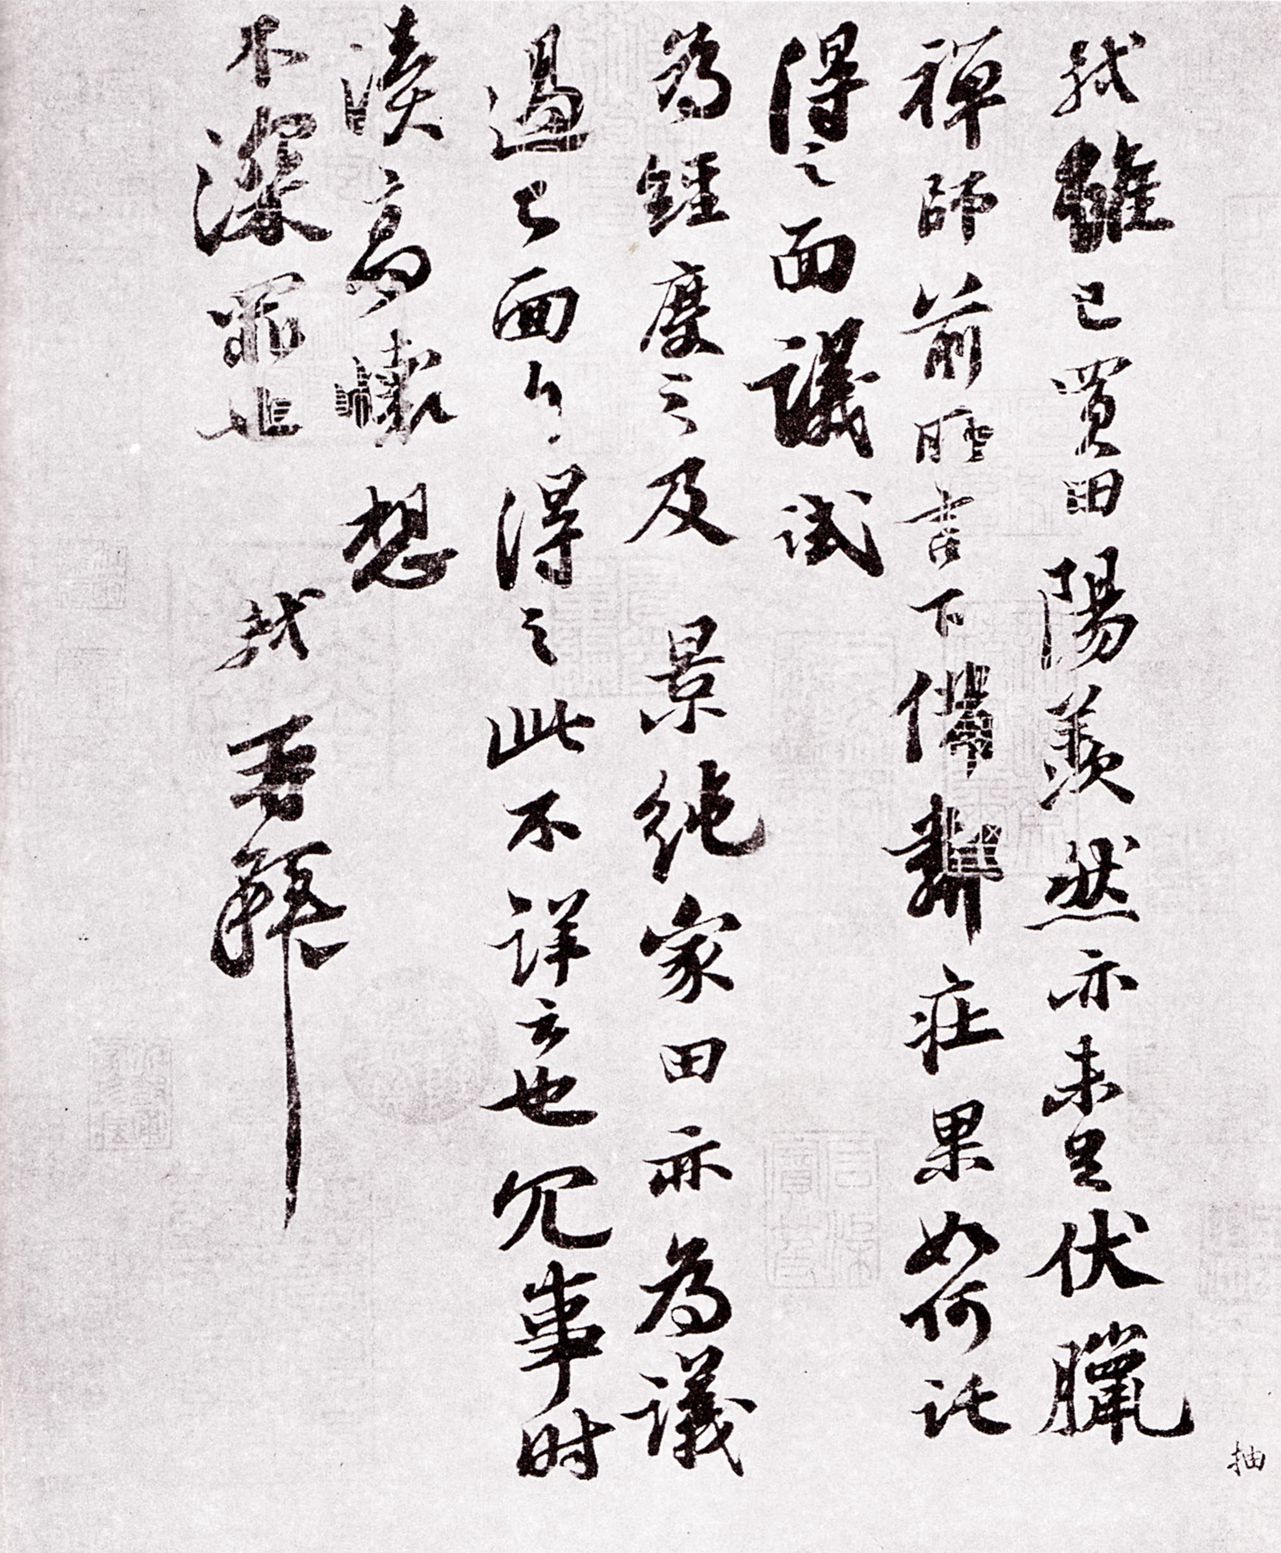 軾雖已買田陽羨然亦未足伏臘
禪師前所言下備鄰庄果如何託
得之面議試
為經度之及 景純家田亦為議
過已面白得之此不詳云也冗事时
瀆高懷想
不深罪也 軾再拜
抽